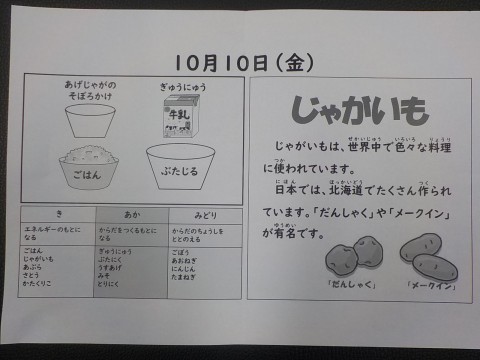 10月10日(金)
あげじゃがの
そぼろかけ
ぎゅうにゅう
牛乳
ごはん
ぶたじる
き
あか
みどり
エネルギーのもとに
なる
からだをつくるもとに
なる
からだのちょうしを
ととのえる
ごはん
じゃがいも
あぶら
さとう
かたくりこ
ぎゅうにゅう
ぶたにく
うすあげ
みそ
とりにく
ごぼう
あおねぎ
にんじん
たまねぎ
じゃがいも
じゃがいもは、世界中で色々な料理
に使われています。
日本では、北海道でたくさん作られ
ています。「だんしゃく」や「メークイン」
が有名です。
「だんしゃく」
「メークイン」